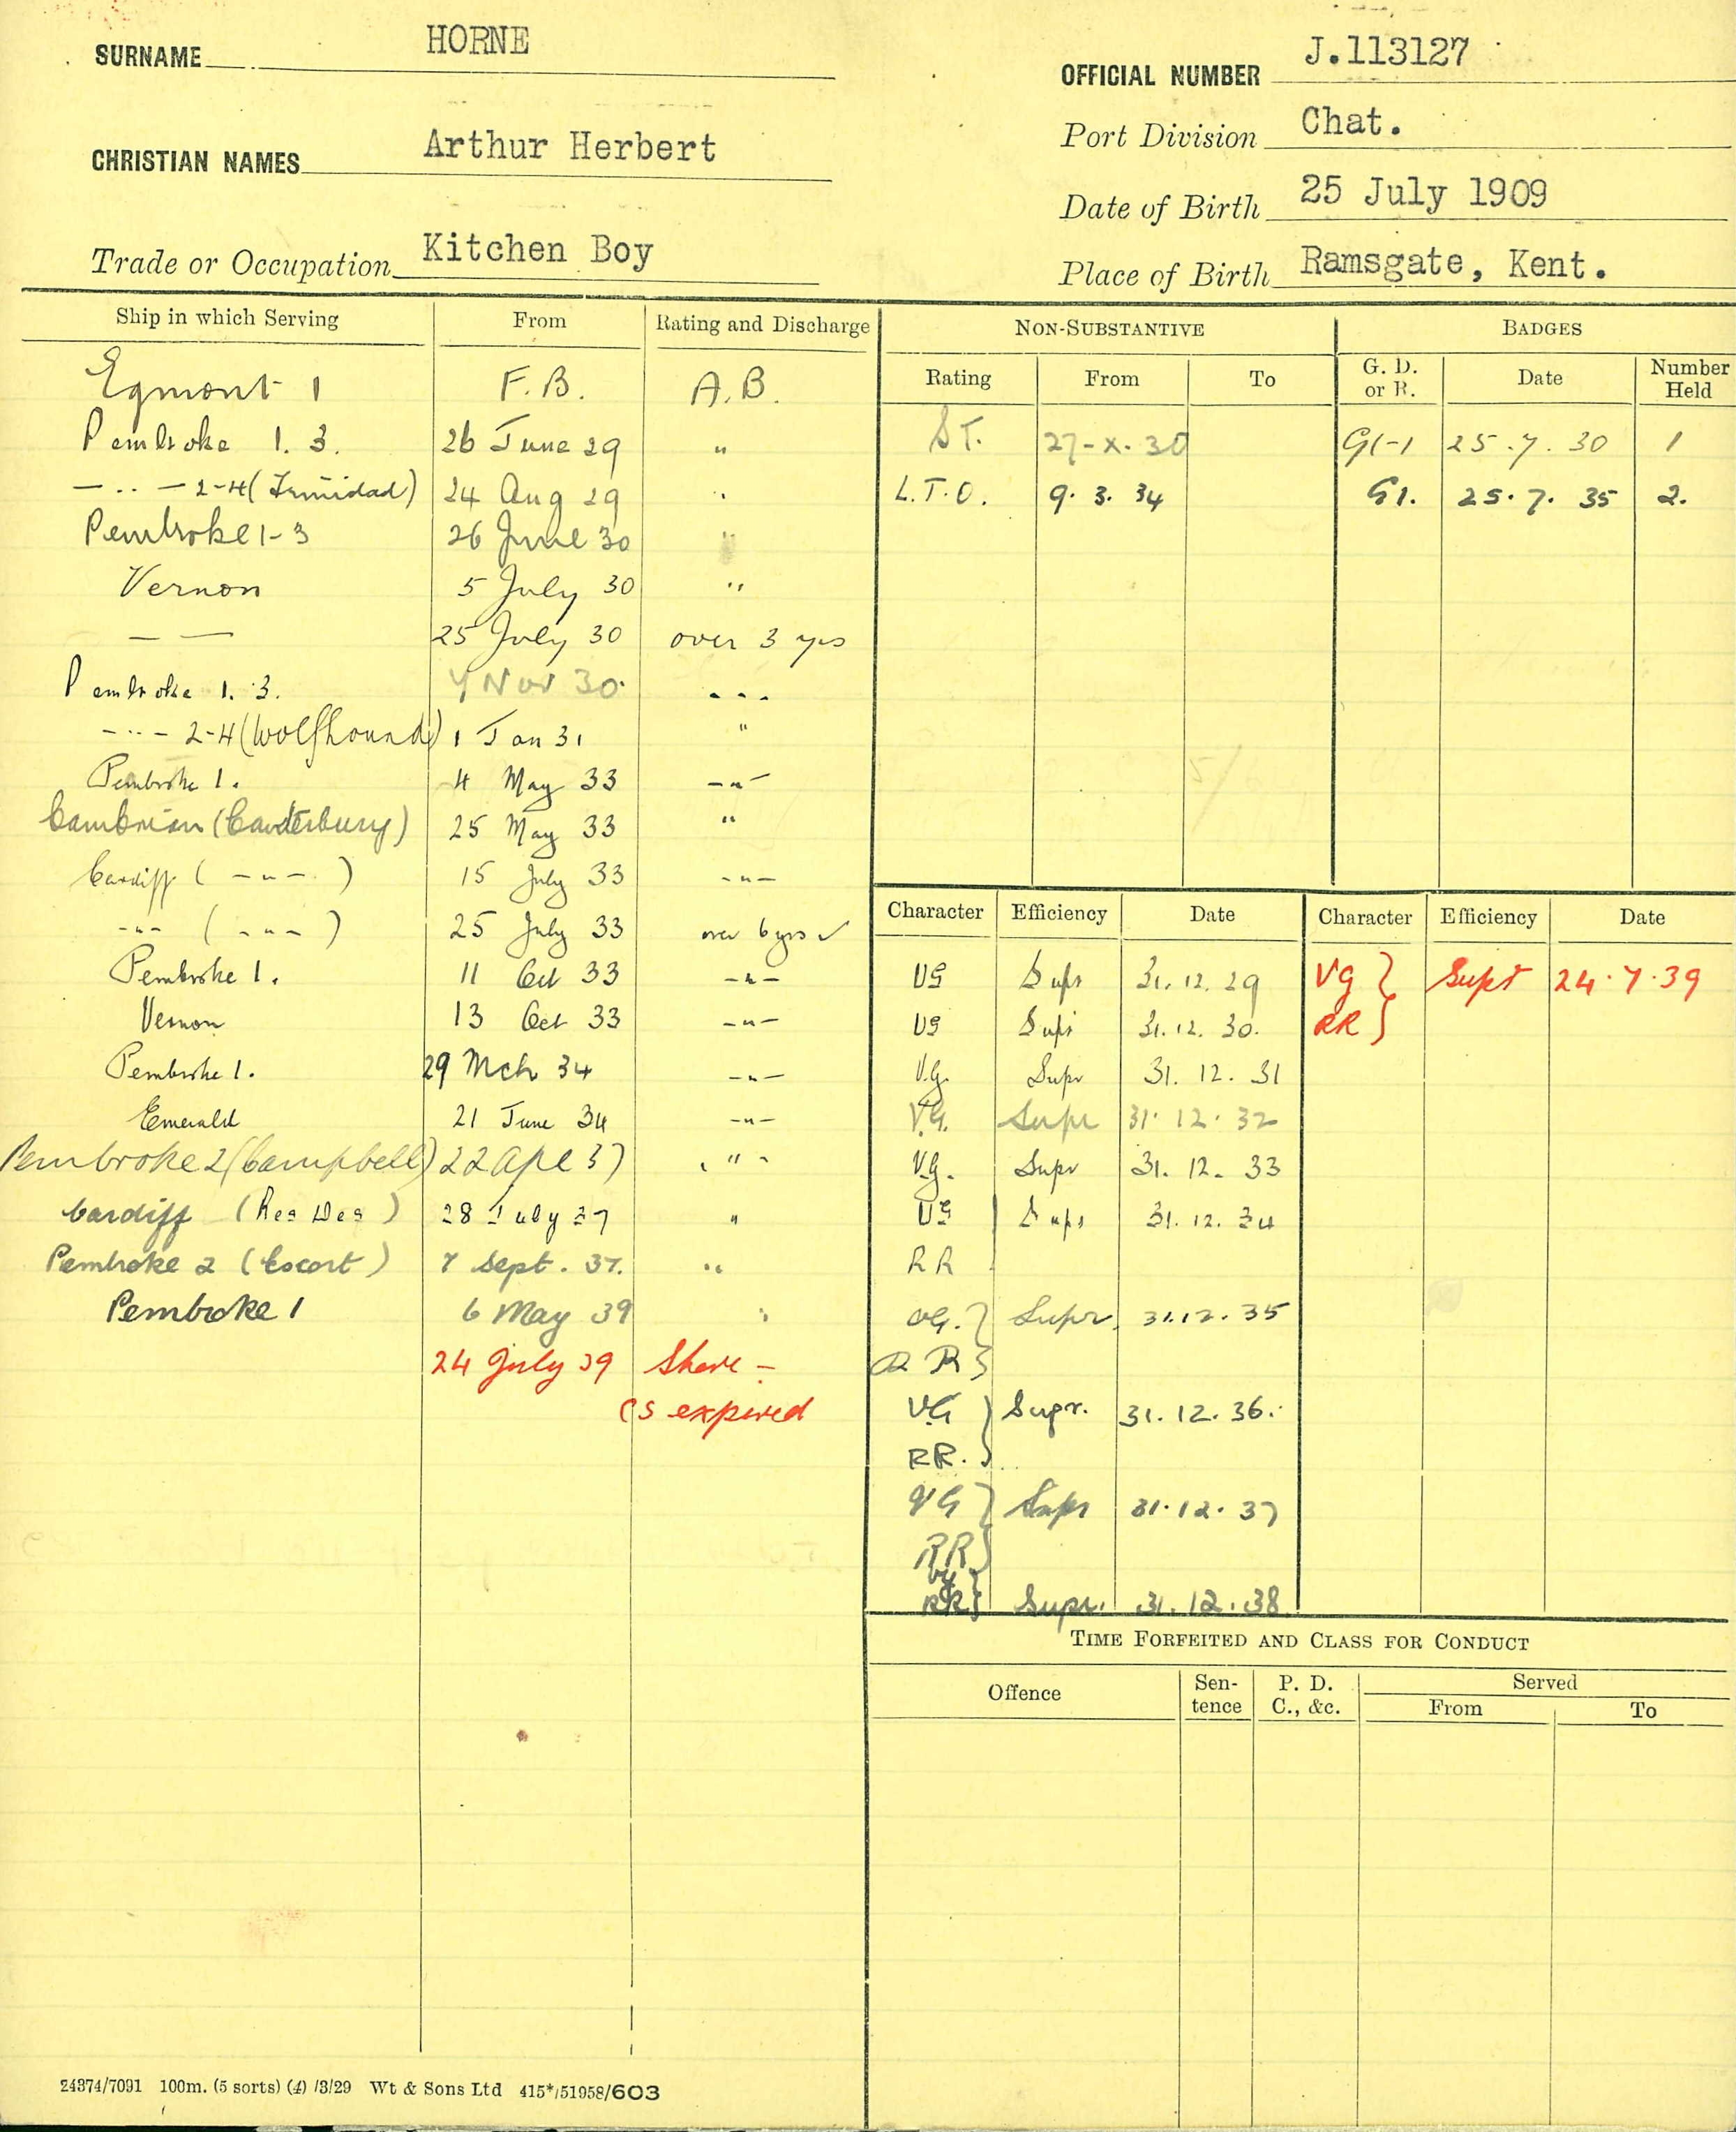 SURNAME HORNE
OFFICIAL NUMBER J.113127
Port Division Chat.
CHRISTIAN NAMES Arthur Herbert
Date of Birth 25 July 1909
Trade or Occupation Kitchen Boy
Place of Birth Ramsgate, Kent.
Ship in which Serving From Rating and Discharge
Egmont 1 F.B. A.B.
Pembroke 1.3. 26 June 29 "
— .. — 2-4 (Trinidad) 24 Aug 29 "
Pembroke 1-3 26 June 30 "
Vernon 5 July 30 "
— — 25 July 30 over 3 yrs
Pembroke 1.3. 7 Nov 30 - - -
- .. - 2-4 (Wolfhound) 1 Jan 31 "
Pembroke 1. 4 May 33 -"-
Cambrian (Canterbury) 25 May 33 "
Cardiff ( -"- ) 15 July 33 -"-
-"- ( -"- ) 25 July 33 over 6 yrs
Pembroke 1. 11 Oct 33 -"-
Vernon 13 Oct 33 -"-
Pembroke 1. 29 Mch 34 -"-
Emerald 21 June 34 -"-
Pembroke 2 (Campbell) 22 Apl 37 "
Cardiff (Res Des) 28 July 37 "
Pembroke 2 (Escort) 7 Sept. 37. "
Pembroke 1 6 May 39 "
24 July 39 Shore -
CS expired
NON-SUBSTANTIVE BADGES
Rating From To G. D. or R. Date Number Held
S.T. 27-X-30 G(-1 25.7.30 1
L.T.O. 9.3.34 G1. 25.7.35 2.
Character Efficiency Date Character Efficiency Date
VG Supr 31.12.29 VG } Supr 24.7.39
VG Supr 31.12.30. RR }
V.G. Supr 31.12.31
V.G. Supr 31.12.32
V.G. Supr 31.12.33
VG Supr 31.12.34
RR
VG. } Supr. 31.12.35
RR }
VG } Supr. 31.12.36.
RR. }
VG } Supr 31.12.37
RR }
VG }
RR } Supr. 31.12.38
TIME FORFEITED AND CLASS FOR CONDUCT
Offence Sentence P. D. C., &c. Served
From To
24374/7091 100m. (5 sorts) (4) /3/29 Wt & Sons Ltd 415*/51958/603